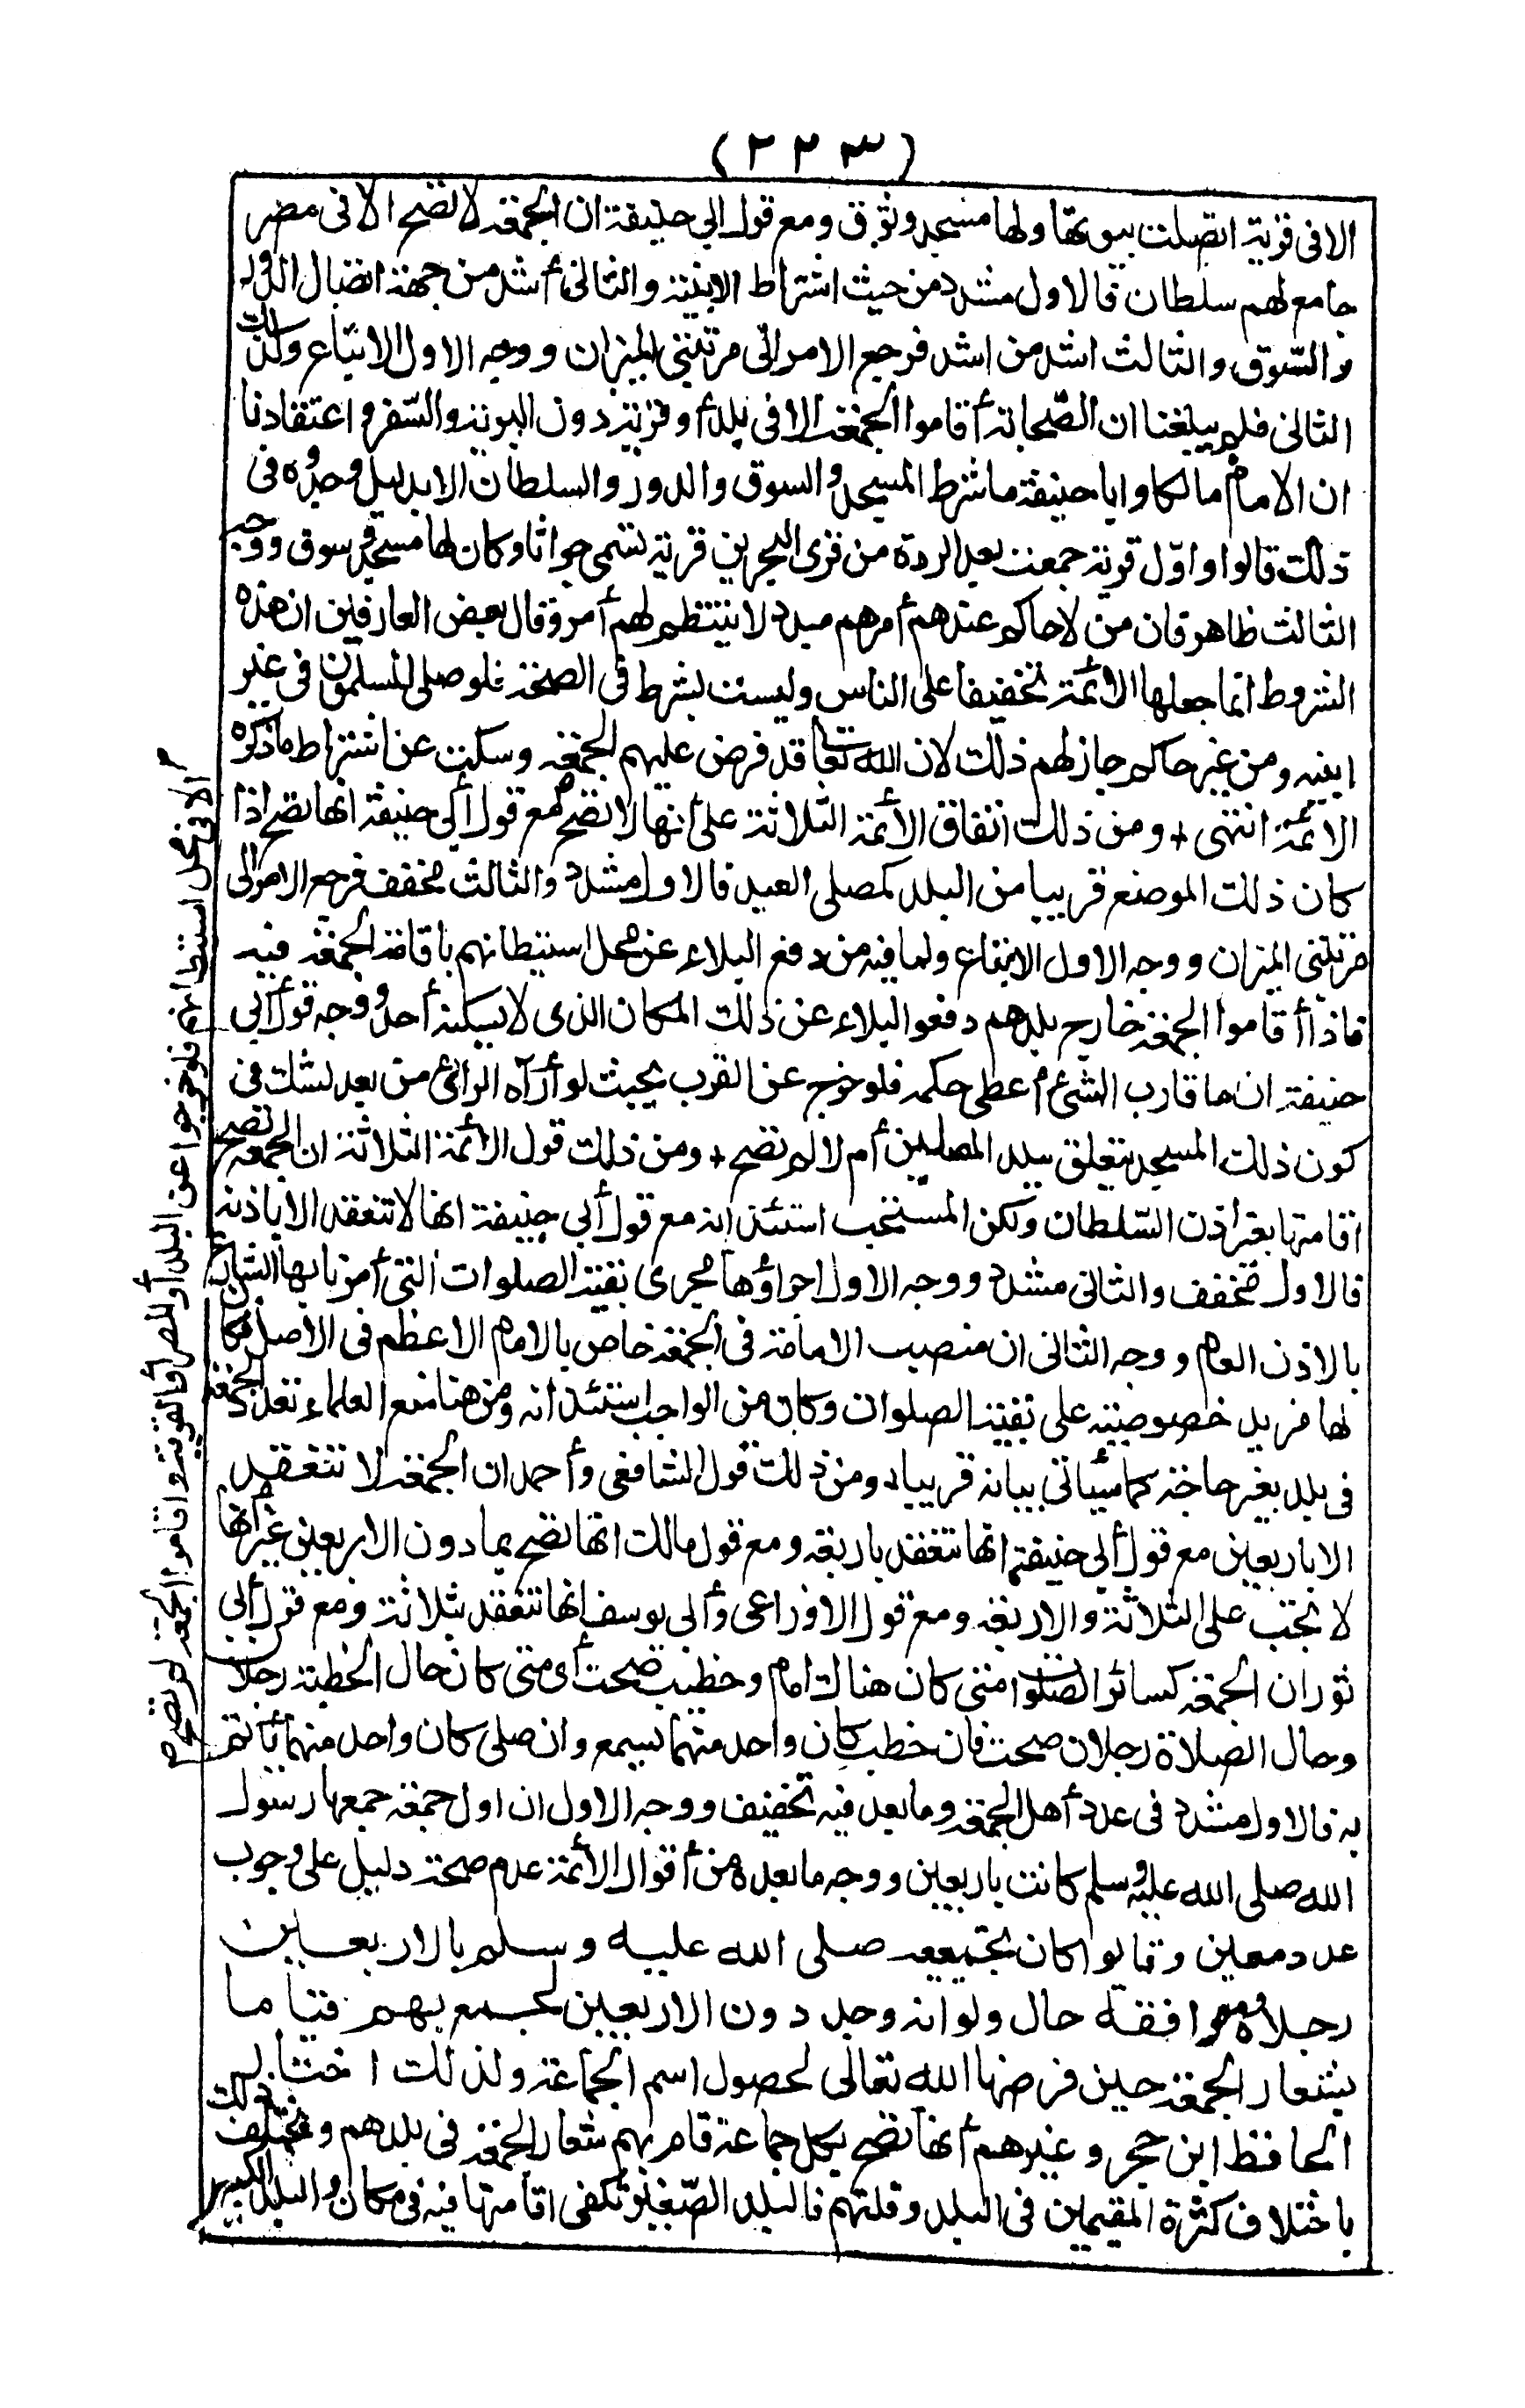 (٢٢٣)
الا فى قرية اتصلت بيوتها ولها مسجد وسوق ومع قول ابي حنيفة ان الجمعة لا تصح الا فى مصر
جامع لهم سلطان فالاول مشدد من حيث اشتراط الابنية والثانى أشد من جهة اتصال الدور
والسوق والثالث اشد من اشد فرجع الامر الى مرتبتي الميزان ووجه الاول الاتباع وكذلك
الثانى فلم يبلغنا ان الصحابة أقاموا الجمعة الا فى بلد أو قرية دون البرية والسفر واعتقادنا
ان الامام مالكا وابا حنيفة ما شرط المسجد والسوق والدور والسلطان الا بدليل وجدوه فى
ذلك قالوا واول قرية جمعت بعد الردة من قرى البحرين قرية تسمى جواثا وكان لها مسجد وسوق ووجه
الثالث ظاهر فان من لا حاكم عندهم أمرهم مبدد لا ينتظم لهم أمر وقال بعض العارفين ان هذه
الشروط انما جعلها الائمة تخفيفا على الناس وليست بشرط فى الصحة فلو صلى المسلمون فى غير
ابنيه ومن غير حاكم جاز لهم ذلك لان الله تعالى قد فرض عليهم الجمعة وسكت عن اشتراط ما ذكره
الائمة انتهى + ومن ذلك اتفاق الأئمة الثلاثة على أنها لا تصح م مع قول أبي حنيفة انها تصح اذا
كان ذلك الموضع قريبا من البلد كمصلى العيد فالاول مشدد والثالث مخفف فرجع الامر الى
مرتبتي الميزان ووجه الاول الاتباع ولما فيه من دفع البلاء عن محل استيطانهم باقامة الجمعة فيه
فاذا أقاموا الجمعة خارج بلدهم دفعوا البلاء عن ذلك المكان الذى لا يسكنه أحد ووجه قول أبي
حنيفة ان ما قارب الشئ أعطى حكمه فلو خرج عن القرب بحيث لو رآه الرائى من بعد لشك فى
كون ذلك المسجد يتعلق ببلد المصلين أم لا لم تصح + ومن ذلك قول الائمة الثلاثة ان الجمعة تصح
اقامتها بغير اذن السلطان ولكن المستحب استئذانه مع قول أبي حنيفة انها لا تنعقد الا باذنه
فالاول مخفف والثانى مشدد ووجه الاول اجراؤها مجرى بقية الصلوات التى أمرنا بها الشارع
بالاذن العام ووجه الثانى ان منصب الامامة فى الجمعة خاص بالامام الاعظم فى الاصل فكان
لها مزيد خصوصية على بقية الصلوات وكان من الواجب استئذانه ومن هنا منع العلماء تعدد الجمعة
فى بلد بغير حاجة كما سيأتى بيانه قريبا + ومن ذلك قول الشافعى وأحمد ان الجمعة لا تنعقد
الا باربعين مع قول أبي حنيفة انها تنعقد باربعة ومع قول مالك انها تصح بما دون الاربعين غير أنها
لا تجب على الثلاثة والاربعة ومع قول الاوزاعى وأبى يوسف انها تنعقد بثلاثة ومع قول أبى
ثور ان الجمعة كسائر الصلوات متى كان هناك امام وخطيب صحت أى متى كان حال الخطبة رجلان
وحال الصلاة رجلان صحت فان خطب كان واحد منهما يسمع وان صلى كان واحد منهما يأتم
به فالاول مشدد فى عدد أهل الجمعة وما بعد فيه تخفيف ووجه الاول ان اول جمعة جمعها رسول
الله صلى الله عليه وسلم كانت باربعين ووجه ما بعده من أقوال الأئمة عدم صحة دليل على وجوب
عدد معين وقالوا كان تجميعه صلى الله عليه وسلم بالاربعين
رجلا موافقة حال ولو انه وجد دون الاربعين لجمع بهم قياما
بشعار الجمعة حين فرضها الله تعالى لحصول اسم الجماعة ولذلك اختار
الحافظ ابن حجر وغيرهم أنها تصح بكل جماعة قام بهم شعار الجمعة فى بلدهم ويختلف ذلك
باختلاف كثرة المقيمين فى البلد وقلتهم فالبلد الصغير تكفى اقامتها فيه فى مكان والبلد الكبير
م الا فى محل استيطانهم فلو خرجوا عن البلد أو المصر أو القرية واقاموا الجمعة لم تصح